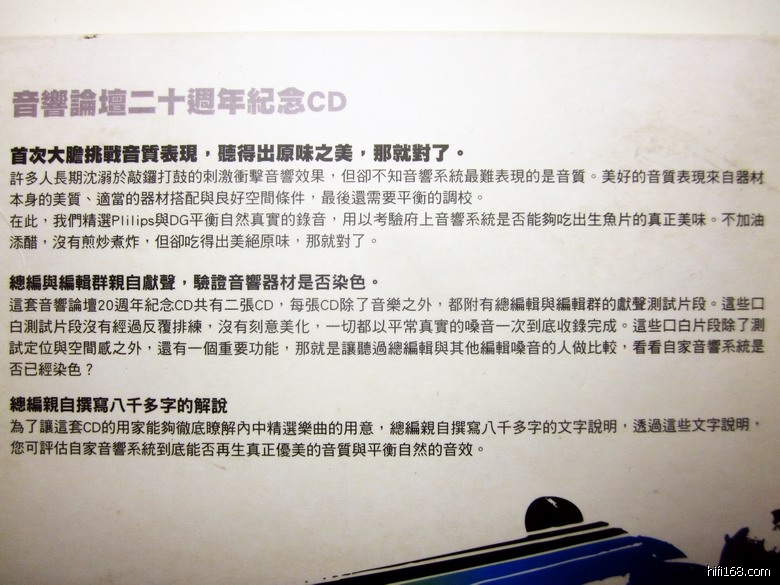 音響論壇二十週年紀念CD
首次大膽挑戰音質表現，聽得出原味之美，那就對了。
許多人長期沈溺於敲鑼打鼓的刺激衝擊音響效果，但卻不知音響系統最難表現的是音質。美好的音質表現來自器材
本身的美質、適當的器材搭配與良好空間條件，最後還需要平衡的調校。
在此，我們精選Plilips與DG平衡自然真實的錄音，用以考驗府上音響系統是否能夠吃出生魚片的真正美味。不加油
添醋，沒有煎炒煮炸，但卻吃得出美絕原味，那就對了。
總編與編輯群親自獻聲，驗證音響器材是否染色。
這套音響論壇20週年紀念CD共有二張CD，每張CD除了音樂之外，都附有總編輯與編輯群的獻聲測試片段。這些口
白測試片段沒有經過反覆排練，沒有刻意美化，一切都以平常真實的嗓音一次到底收錄完成。這些口白片段除了測
試定位與空間感之外，還有一個重要功能，那就是讓聽過總編輯與其他編輯嗓音的人做比較，看看自家音響系統是
否已經染色？
總編親自撰寫八千多字的解說
為了讓這套CD的用家能夠徹底瞭解內中精選樂曲的用意，總編親自撰寫八千多字的文字說明，透過這些文字說明，
您可評估自家音響系統到底能否再生真正優美的音質與平衡自然的音效。
hifi168.com